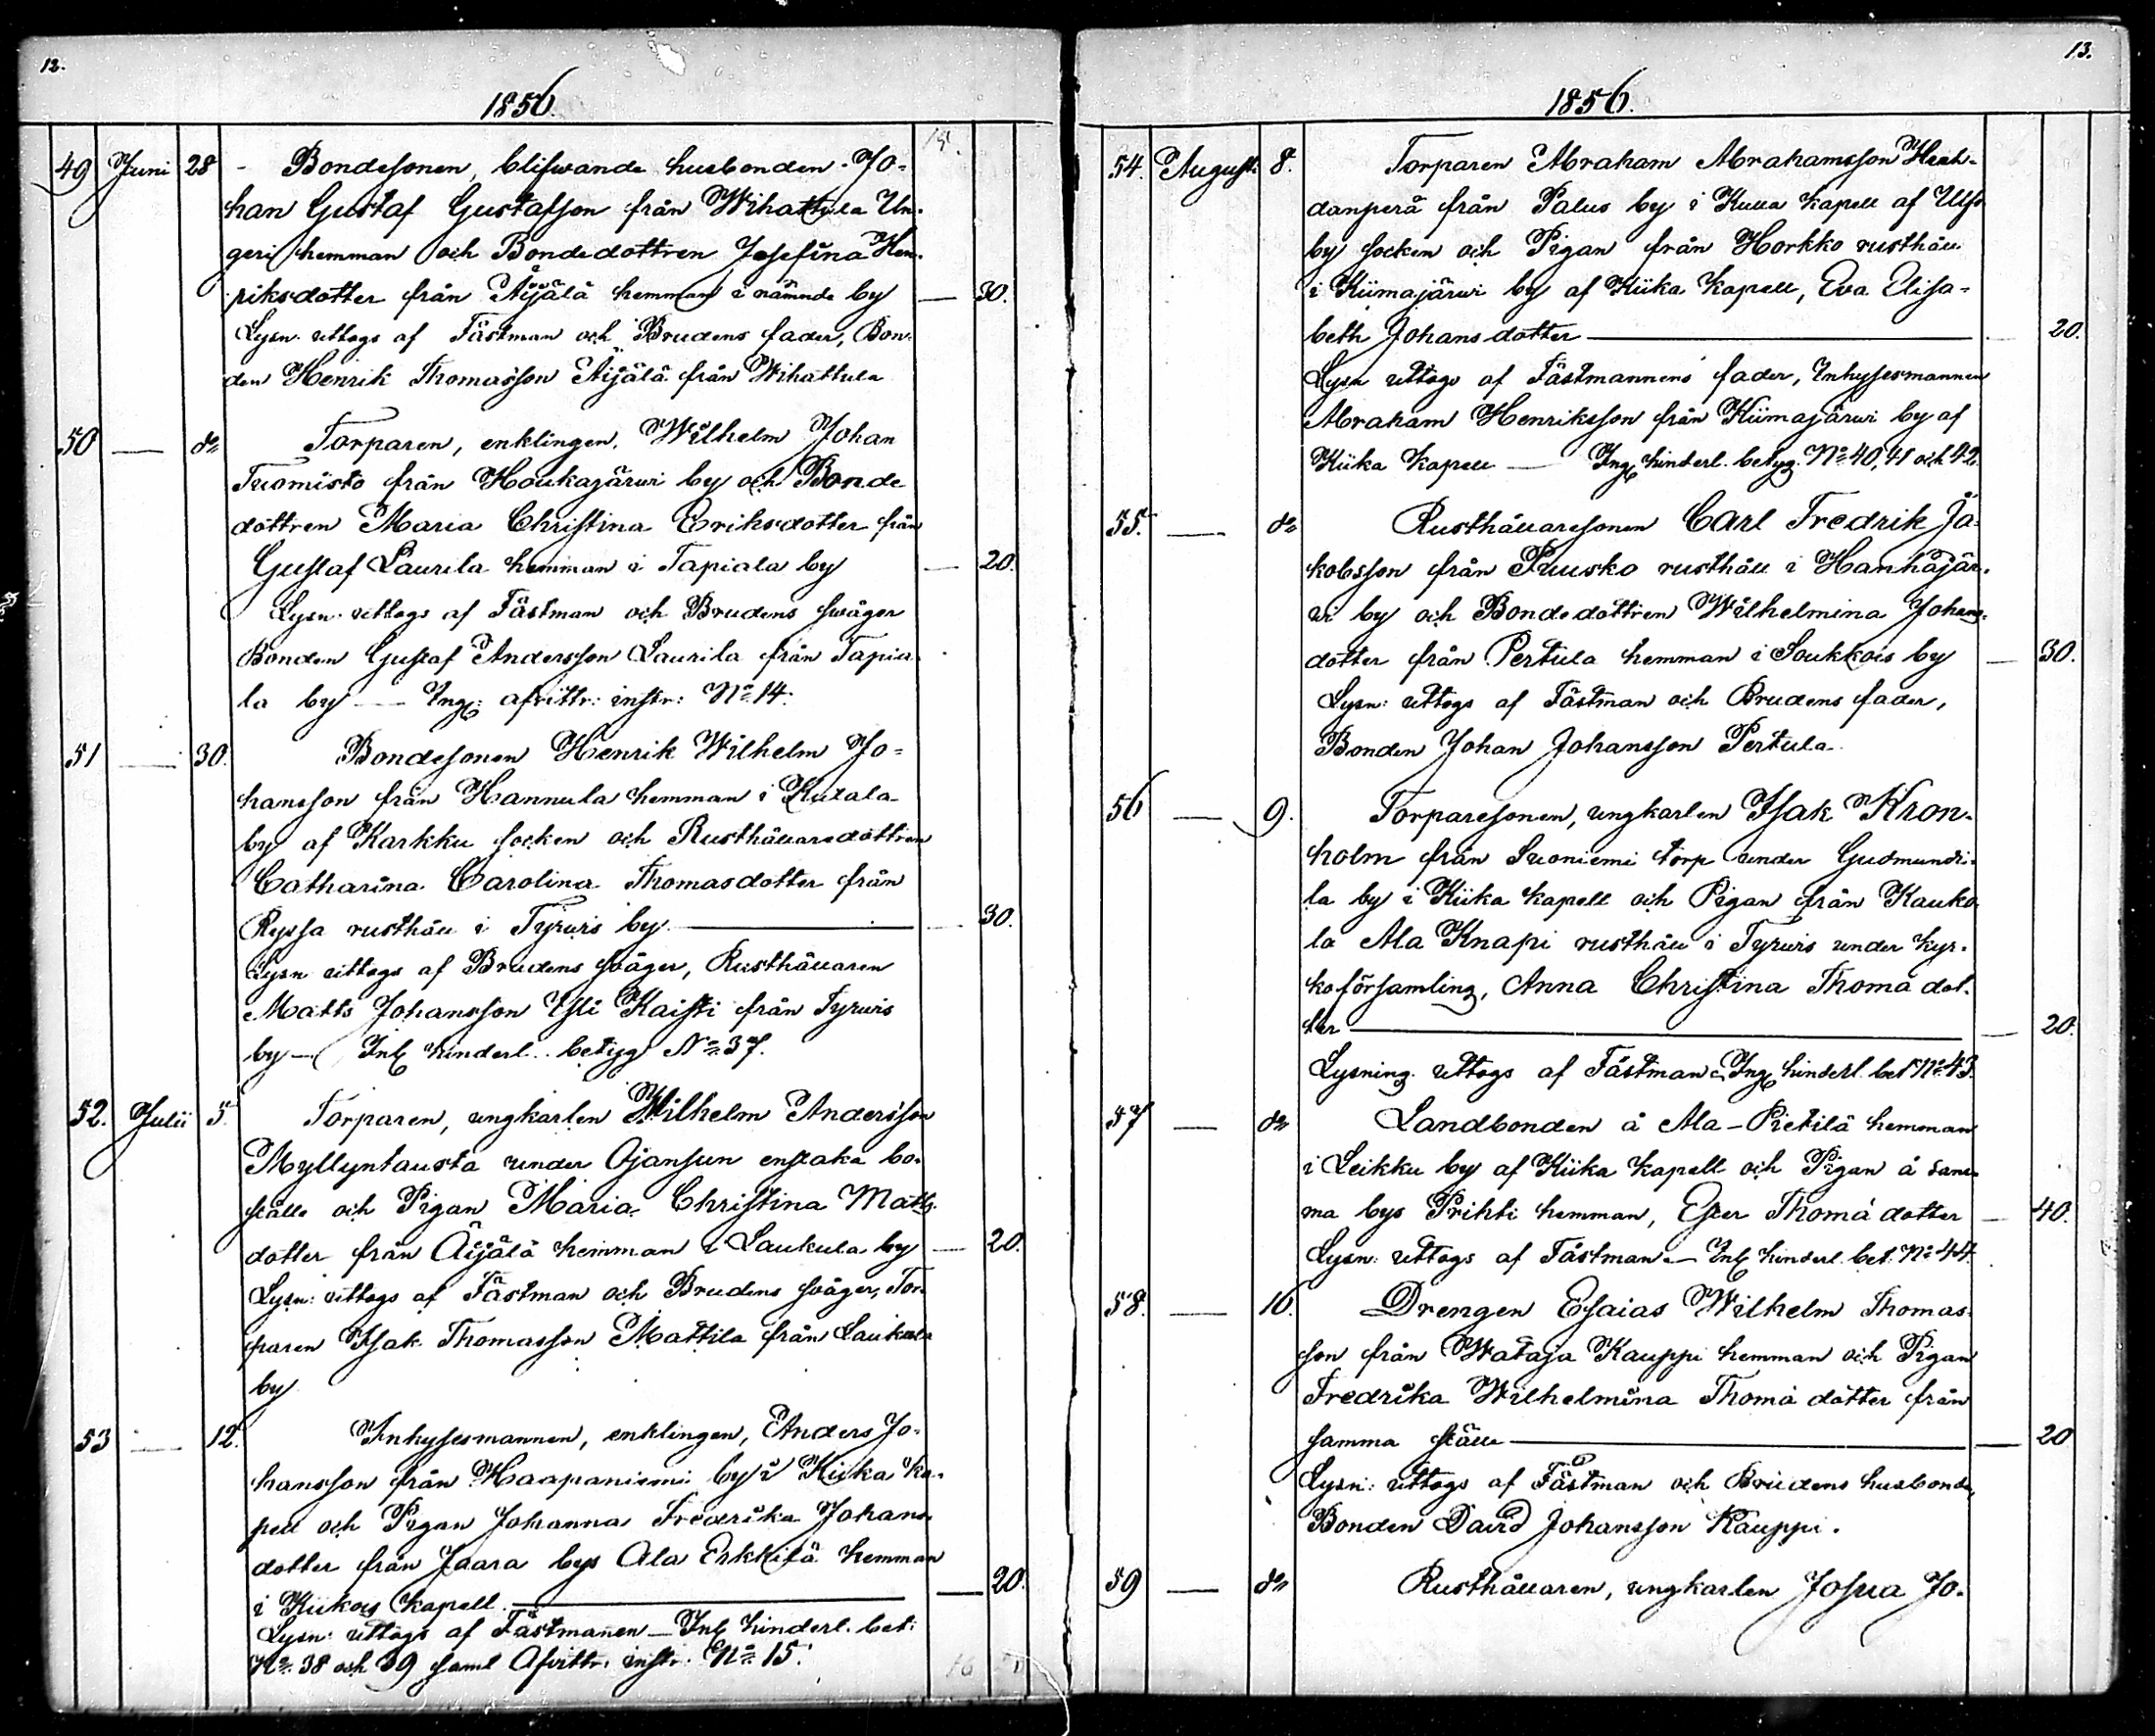 12.
1856.
49 Juni 28 - Bondesonen, blifwande husbonden Jo-
han Gustaf Gustafsson från Wihattula Un-
geri hemman och Bondedottren Josefina Hen-
riksdotter från Äijälä hemman i nämnde by — 30.
Lysn. uttogs af Fästman och Brudens fader, Bon-
den Henrik Thomasson Äijälä från Wihattula
50 — do Torparen, enklingen, Wilhelm Johan
Tuomisto från Houkajärwi by och Bonde
dottren Maria Christina Eriksdotter från
Gustaf Laurila hemman i Tapiala by — 20.
Lysn. uttogs af Fästman och Brudens swåger
Bonden Gustaf Andersson Laurila från Tapia-
la by — Ing: afvittr: instr: No 14.
51 — 30. Bondesonen Henrik Wilhelm Jo-
hansson från Hannula hemman i Kutala
by af Karkku socken och Rusthållaredottren
Catharina Carolina Thomasdotter från
Ryssä rusthåll i Tyrwis by — 30.
Lysn uttogs af Brudens swåger, Rusthållaren
Matts Johansson Yli Kaisti från Tyrwis
by — Inl hinderl. betyg No 37.
52. Julii 5. Torparen, ungkarlen Wilhelm Andersson
Myllyntausta under Ojansun enstaka bo-
ställe och Pigan Maria Christina Matts-
dotter från Äijälä hemman i Laukula by — 20.
Lysn: uttogs af Fästman och Brudens swåger, Tor-
paren Isak Thomasson Mattila från Laukula
by
53 — 12. Inhysesmannen, enklingen, Anders Jo-
hansson från Haapaniemi by i Kiika ka-
pell och Pigan Johanna Fredrika Johans-
dotter från Jaara bys Ala Erkkilä hemman
i Kiikois kapell — 20.
Lysn: uttogs af Fästmanen — Inl hinderl. bet:
No 38 och 39 samt Afvittr. instr: No 15.
13.
1856.
54. Augusti 8. Torparen Abraham Abrahamsson Hieh-
danperä från Palus by i Kulla kapell af Ulfs-
by socken och Pigan från Horkko rusthåll
i Kiimajärwi by af Kiika kapell, Eva Elisa-
beth Johansdotter — 20.
Lysn uttogs af Fästmannens fader, Inhysesmannen
Abraham Henriksson från Kiimajärwi by af
Kiika kapell — Ing hinderl. betyg. No 40, 41 och 42.
55. — do Rusthållaresonen Carl Fredrik Ja-
kobsson från Puusko rusthåll i Hanhajär-
wi by och Bondedottren Wilhelmina Johans-
dotter från Pertula hemman i Soukkois by — 30.
Lysn: uttogs af Fästman och Brudens fader,
Bonden Johan Johansson Pertula.
56 — 9. Torparesonen, ungkarlen Isak Kron-
holm från Suoniemi torp under Gudmundi-
la by i Kiika kapell och Pigan från Kauko-
la Ala Knapi rusthåll i Tyrwis under kyr-
koförsamling, Anna Christina Thomä dot-
ter — 20.
Lysning uttogs af Fästman Ing hinderl. bet No 43.
57 — do Landbonden å Ala-Pietilä hemman
i Leikku by af Kiika kapell och Pigan å sam-
ma bys Prihti hemman, Ester Thomä dotter — 40.
Lysn: uttogs af Fästman — Inl hinderl. bet. No 44.
58. — 10. Drengen Esaias Wilhelm Thomas-
son från Wataja Kauppi hemman och Pigan
Fredrika Wilhelmina Thomä dotter från
samma ställe — 20
Lysn: uttogs af Fästman och Brudens husbonde,
Bonden David Johansson Kauppi.
59 — do Rusthållaren, ungkarlen Josua Jo-